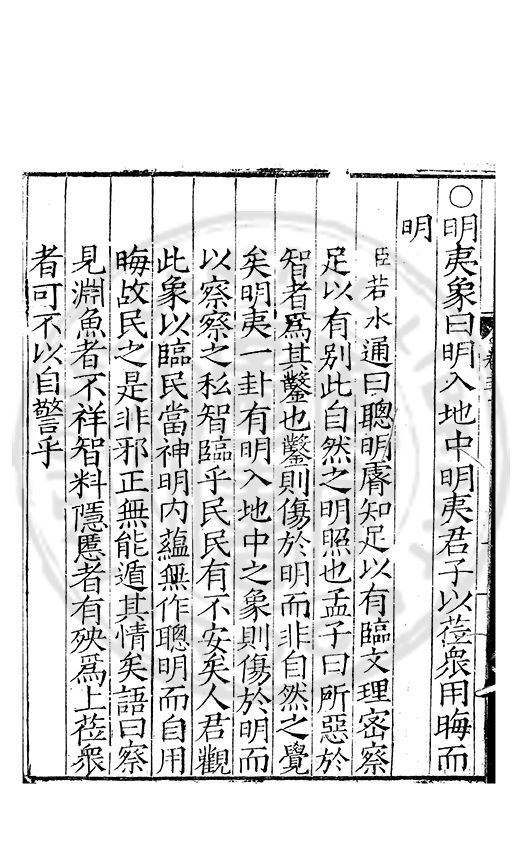 ○明夷象曰明入地中明夷君子以莅衆用晦而
明
臣若水通曰聰明睿知足以有臨文理密察
足以有别此自然之明照也孟子曰所惡於
智者爲其鑿也鑿則傷於明而非自然之覺
矣明夷一卦有明入地中之象則傷於明而
以察察之私智臨乎民民有不安矣人君觀
此象以臨民當神明内蘊無作聰明而自用
晦故民之是非邪正無能遁其情矣語曰察
見淵魚者不祥智料隱慝者有殃爲上莅衆
者可不以自警乎